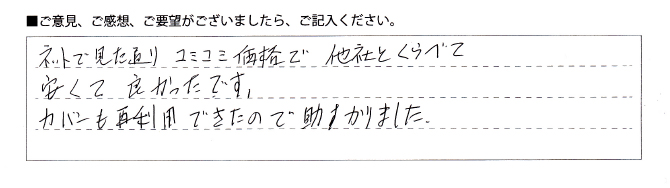 ■ご意見、ご感想、ご要望がございましたら、ご記入ください。
ネットで見た通り コミコミ価格で 他社とくらべて
安くて 良かったです。
カバンも再利用できたので助すかりました.